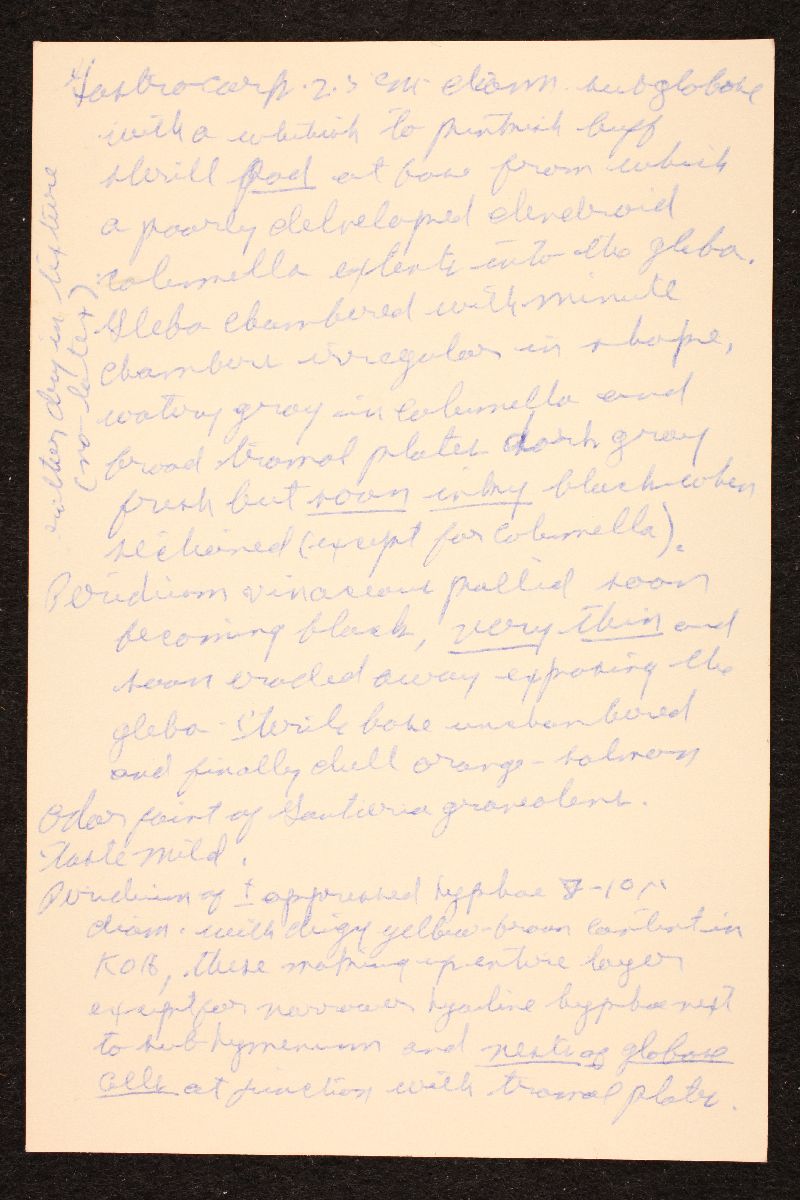 Gastrocarp 2.5 cm diam. subglobose
with a whitish to pinkish buff
sterill pad at base from which
a poorly delveloped dendroid
columella extents into the gleba.
Gleba chambered with minute
chambers irregular in shape,
watery gray in columella and
broad tramal plates dark gray
fresh but soon inky black when
sectioned (except for columella).
Peridium vinaceous pallid soon
becoming black, very thin and
soon eroded away exposing the
gleba - Sterile base unchambered
and finally dull orange-salmon
Odor faint of Gautieria graveolens.
Taste mild.
Peridium of ± appressed hyphae 8-10 µ
diam. with dingy yellow-brown content in
KOH, these making up entire layer
except for narrower hyaline hyphae next
to subhymenium and nests of globose
cells at junction with tramal plates.
rather dry in texture
(no latex)